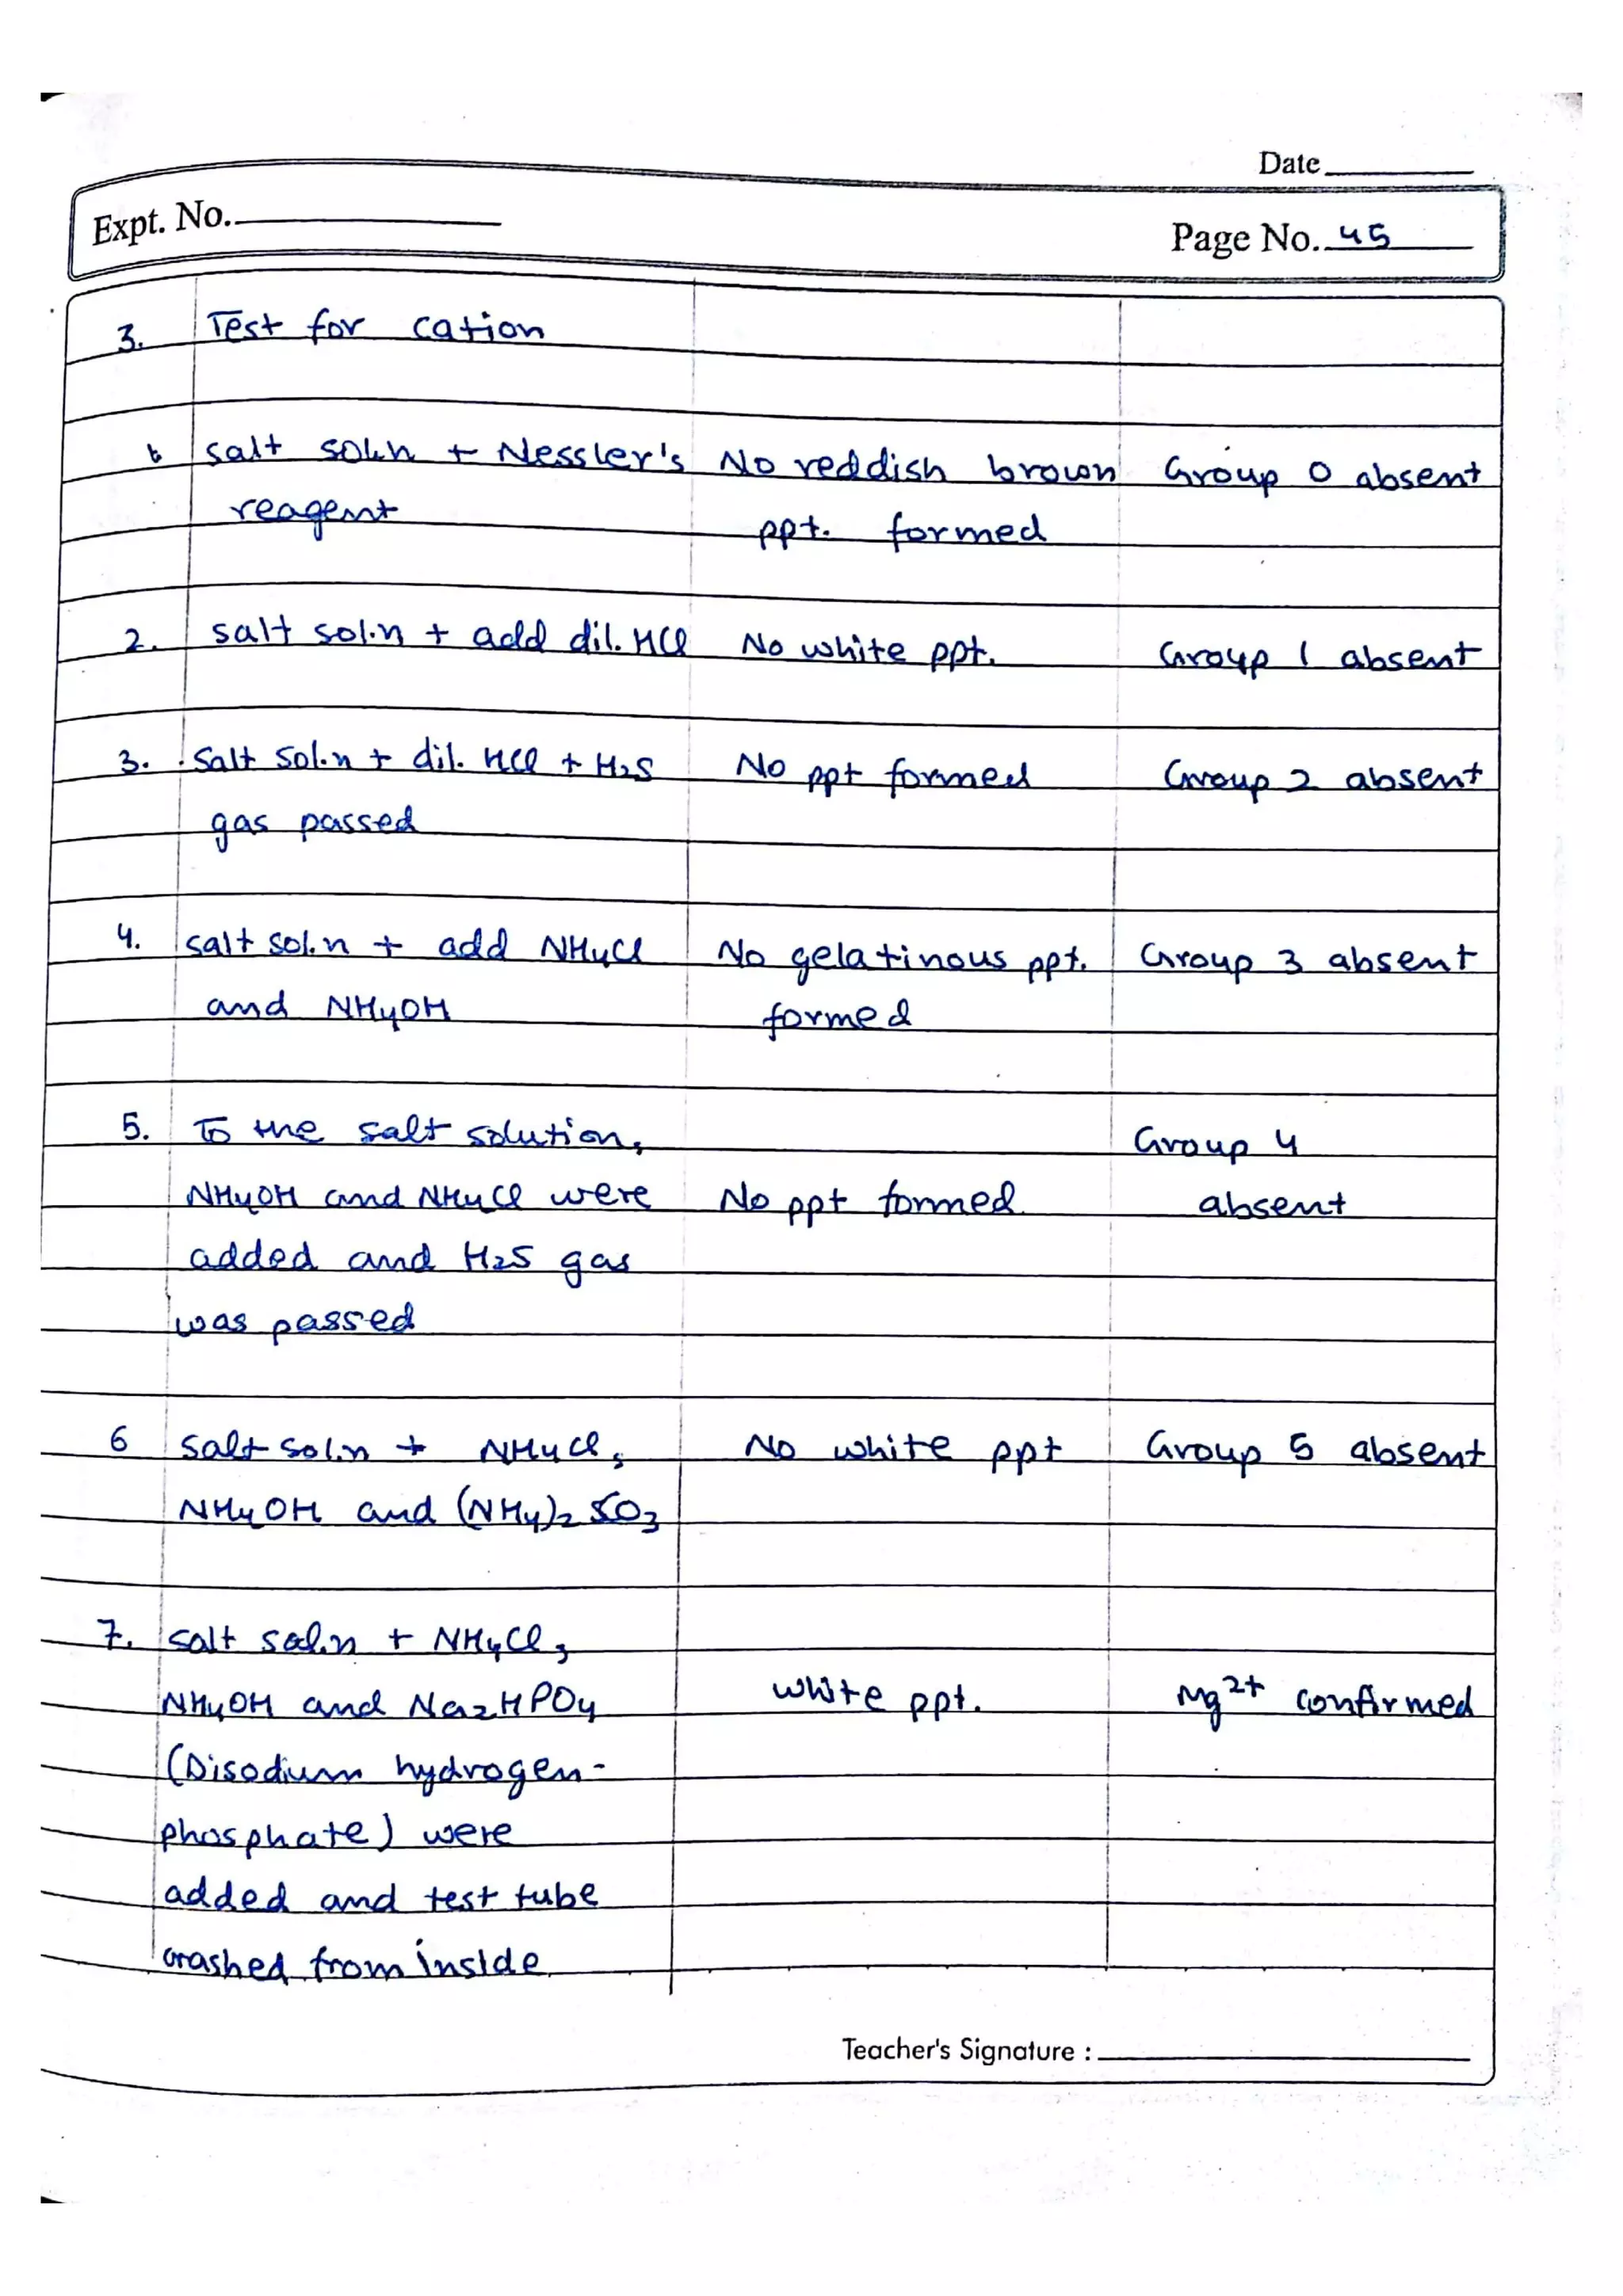 Date
Expt. No.
Page No. 45
3. Test for cation
salt soln + Nessler's No reddish brown Group 0 absent
reagent ppt. formed
2. salt sol.n + add dil. HCl No white ppt. Group 1 absent
3. Salt Sol.n + dil. HCl + H2S No ppt formed Group 2 absent
gas passed
4. salt sol.n + add NH4Cl No gelatinous ppt. Group 3 absent
and NH4OH formed
5. To the salt solution, Group 4
NH4OH and NH4Cl were No ppt formed absent
added and H2S gas
was passed
6 Salt Sol.n + NH4Cl, No white ppt Group 5 absent
NH4OH and (NH4)2 SO3
7. salt sol.n + NH4Cl, 
NH4OH and Na2HPO4 white ppt. Mg2+ confirmed
(Disodium hydrogen-
phosphate) were
added and test tube
crashed from inside
Teacher's Signature :